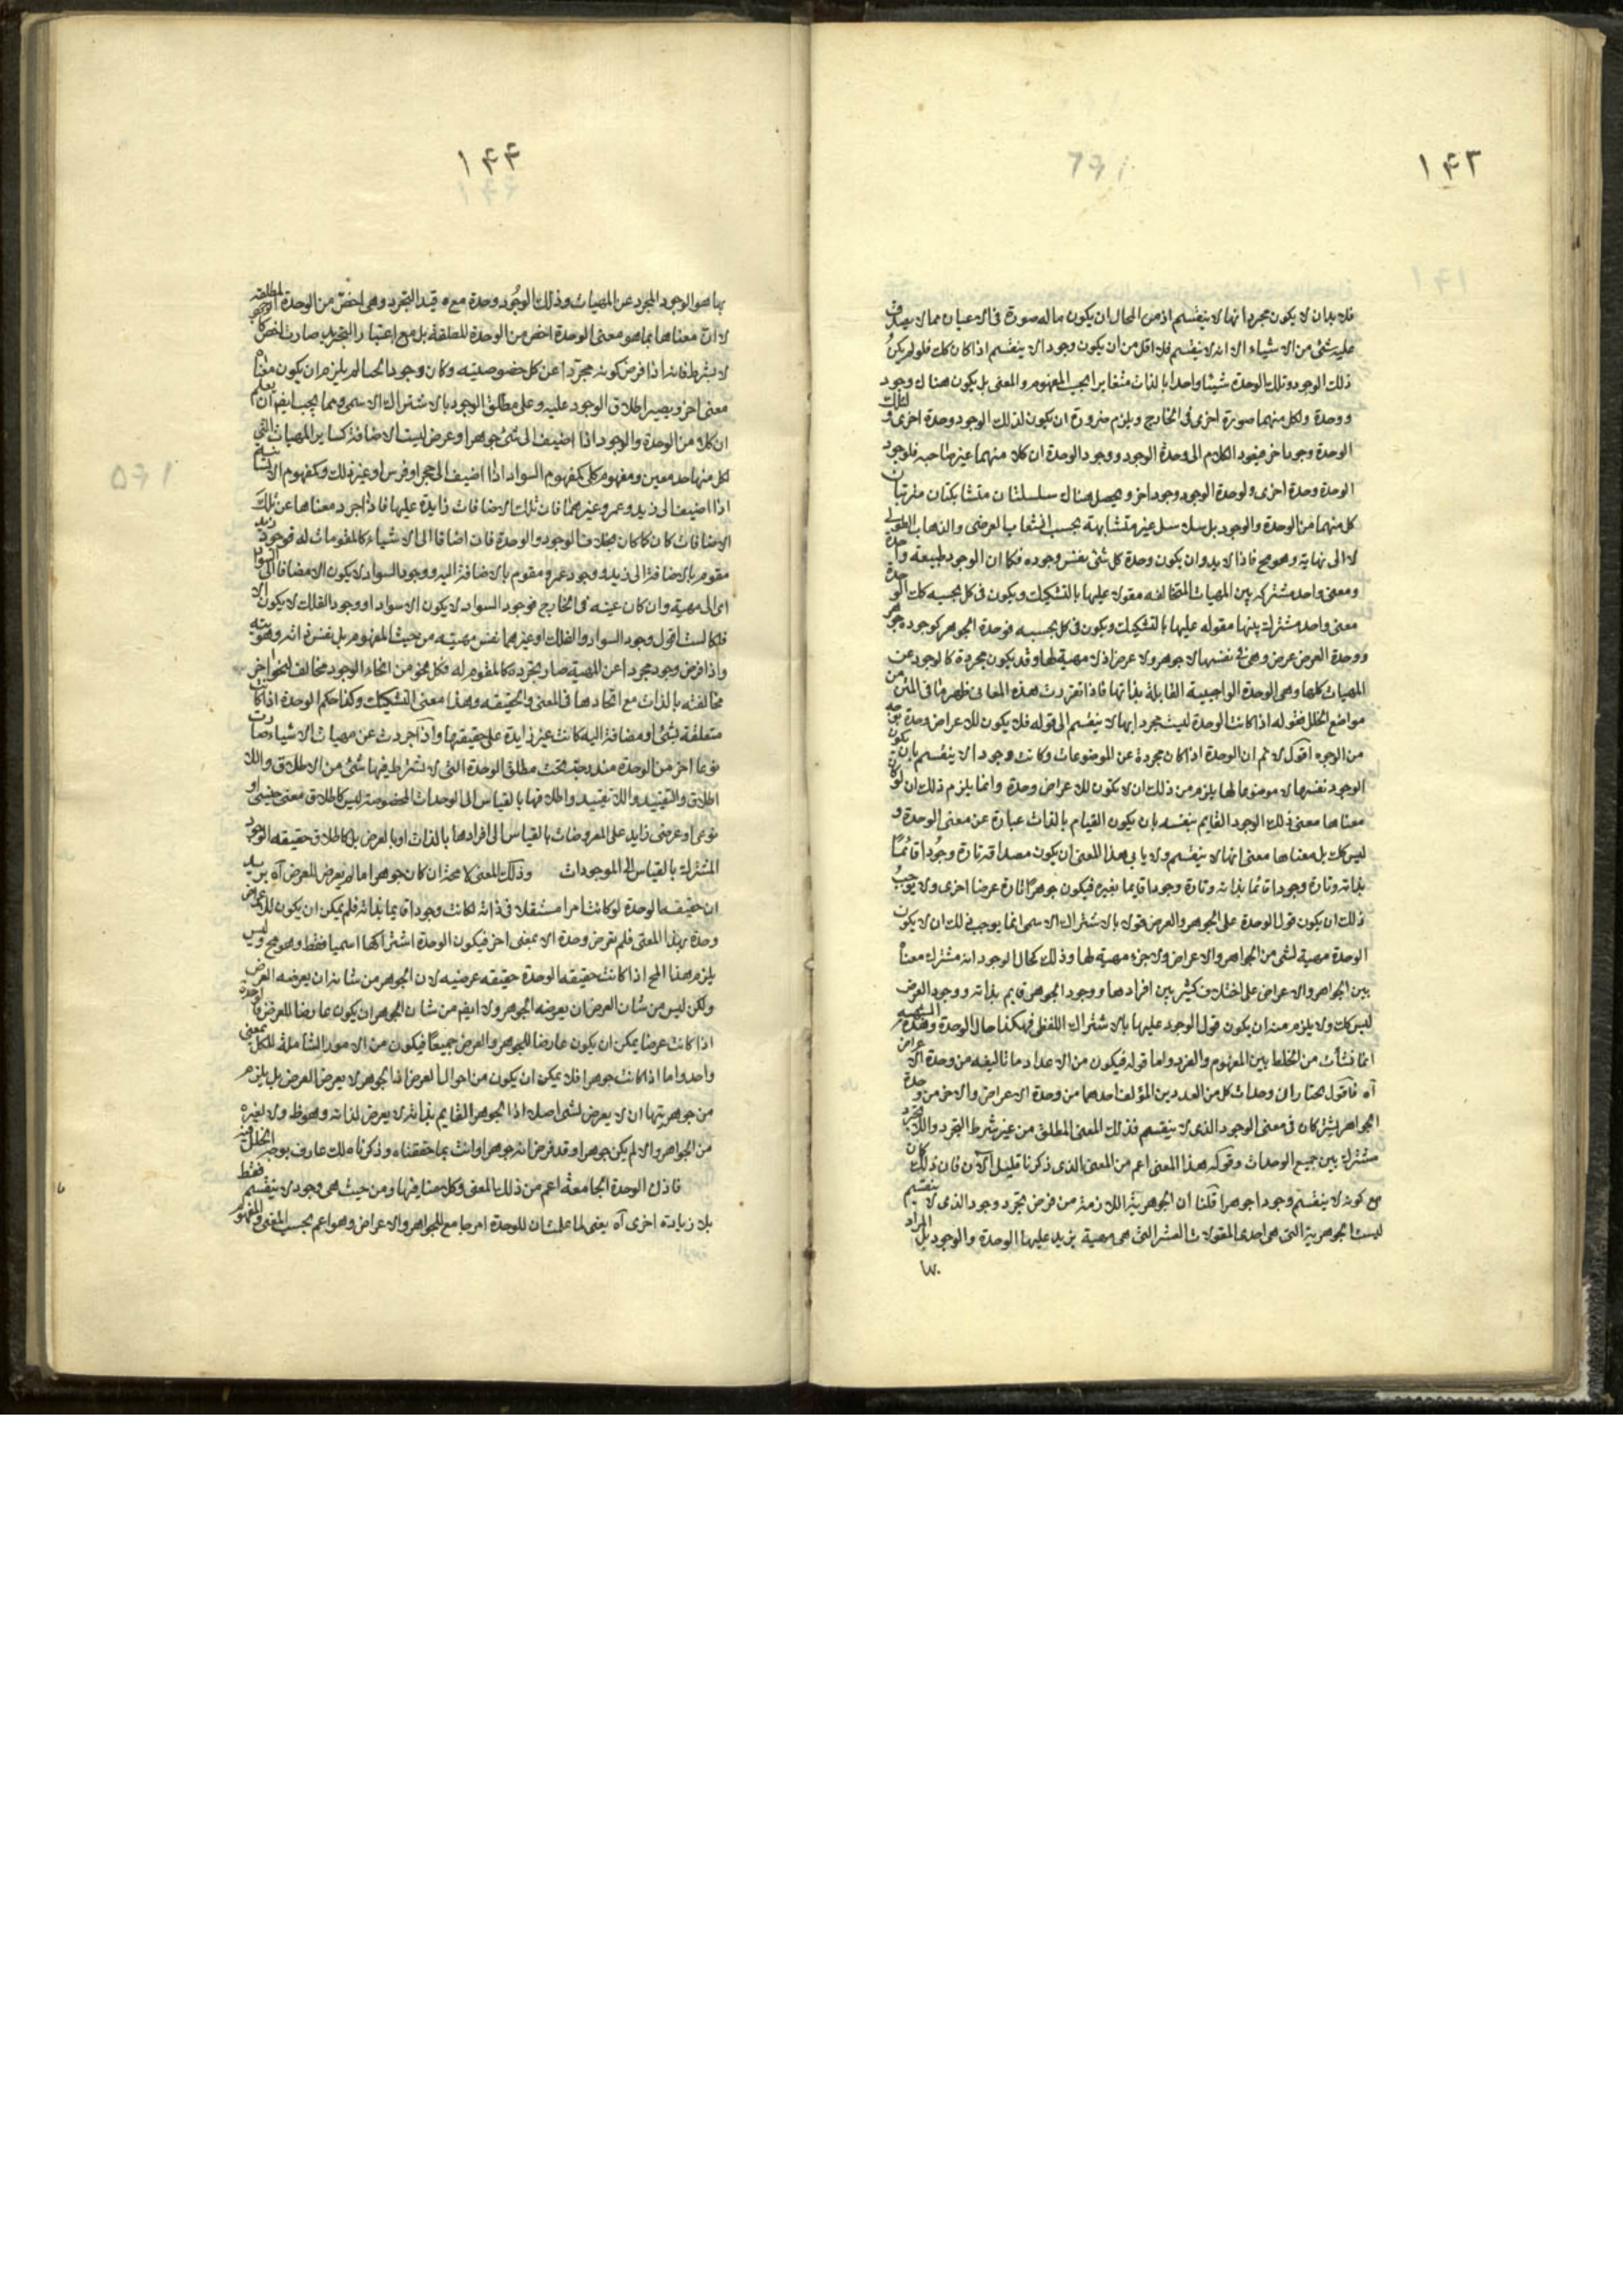 ١۴٣
فلابد ان لا يكون مجرد انها لا ينقسم اذ من المحال ان يكون ماله صورة فى الاعيان مما لا يصدق
عليه شئ من الاشياء الا انه لا ينقسم فلا اقل من ان يكون وجود لا ينقسم اذا كان كك فلو لم يكن
ذلك الوجود وتلك الوحدة شيئا واحدا بالذات متغايرا بحسب المفهوم والمعنى بل يكون هناك وجود
ووحدة ولكل منهما صورة اخرى فى الخارج ويلزم ضرورة ان يكون لذلك الوجود وحدة اخرى ولتلك
الوحدة وجود اخر فيعود الكلام الى وحدة الوجود ووجود الوحدة ان كلا منهما غير صاحبه فلوجود
الوحدة وحدة اخرى ولوحدة الوجود وجود اخر ويحصل هناك سلسلتان متشابكتان مترتبتان
كل منهما من الوحدة والوجود بل سلاسل غير متشابهة بحسب انشعاب العرضى والذهاب الطولى
لا الى نهاية وهو مح فاذا لابد وان يكون وحدة كل شئ بنفس وجوده فكما ان الوجود طبيعة واحدة
ومعنى واحد مشترك بين المهيات المتخالفه مقولا عليها بالتشكيك ويكون فى كل بحسبه كك الوحدة
معنى واحد مشترك بينها مقوله عليها بالتشكيك ويكون فى كل بحسبه فوحدة الجوهر كوجوده جوهر
ووحدة العرض عرض وهى فى نفسها لا جوهر ولا عرض اذ لا مهية لها وقد يكون مجردة كالوجود عن
المهيات كلها وهى الوحدة الواجبية القابلة بذاتها فاذا تقررت هذه المعانى ظهر ما فى المتن من
مواضع الخلل فقوله اذا كانت الوحدة ليست مجرد انها لا ينقسم الى قوله فلا يكون للاعراض وحدة بوجه
من الوجوه اقول لا نم ان الوحدة اذا كان مجردة عن الموضوعات وكانت وجودا لا ينقسم بان يكون
الوجود نفسها لا موضوعا لها يلزم من ذلك ان لا يكون للاعراض وحدة وانما يلزم ذلك ان لو كان
معناها معنى ذلك الوجود القايم بنفسه بان يكون القيام بالذات عبارة عن معنى الوحدة و
ليس كك بل معناها معنى انها لا ينقسم ولا يابى هذا المعنى ان يكون مصداقه تارة وجودا قائما
بذاته وتارة وجودا قائما بذاته وتارة وجودا قايما بغيره فيكون جوهرا تارة عرضا اخرى ولا يوجب
ذلك ان يكون قول الوحدة على الجوهر والعرض قولا بالاشتراك الاسمى انما يوجب ذلك ان لا يكون
الوحدة مهية لشئ من الجواهر والاعراض ولا جزء مهية لها وذلك كحال الوجود انه مشترك معناه
بين الجواهر والاعراض على اختلاف كثير بين افرادها ووجود الجوهر قايم بذاته ووجود العرض
ليس كك ولا يلزم منه ان يكون قول الوجود عليها بالاشتراك اللفظى فهكذا حال الوحدة وهذه الشبهه
انما نشأت من الخلط بين المفهوم والفرد واما قوله فيكون من الاعداد ما تاليفه من وحدة الاعراض
آه فاقول نختار ان وحدات كل من العددين المؤلف احدهما من وحدة الاعراض والاخر من وحدة
الجواهر يشتركان فى معنى الوجود الذى لا ينقسم فذلك المعنى المطلق من غير شرط التجرد واللاتجرد
مشترك بين جميع الوحدات وقوله هذا المعنى اعم من المعنى الذى ذكرنا قليل الآن فان ذلك كان
مع كونه لا ينقسم وجودا جوهرا قلنا ان الجوهرية اللازمة من فرض تجرد وجود الذى لا ينقسم
ليست الجوهرية التى هى احدى المقولات العشر التى هى مهية يزيد عليها الوحدة والوجود بل المراد
بها
١۴۴
بها هو الوجود المجرد عن المهيات وذلك الوجود وحدة مع قيد التجرد وهى اخص من الوحدة المطلقه
لا ان معناها بما هو معنى الوحدة اخص من الوحدة المطلقة بل مع اعتبار التجريد صارت اخص
لا بشرط فانه اذا فرض كونه مجردا عن كل خصوصيته وكان وجودا لم يلزم ان يكون معناه
معنى اخر ويصير اطلاق الوجود عليه وعلى مطلق الوجود بالاشتراك الاسمى ومما يجب ايضا ان يعلم
ان كلا من الوحدة والوجود اذا اضيف الى شئ جوهرا وعرض ليست الاضافة كساير المهيات التى
لكل منها حد معين ومفهوم كلى كمفهوم السواد اذا اضيف الى حجر او فرس او غير ذلك وكمفهوم الانسان
اذا اضيف الى زيد وعمرو وغيرهما فان تلك الاضافات زايدة عليها فاذا جرد معناها عن تلك
الاضافات كان كما كان بخلاف الوجود والوحدة فان اضافا الى الاشياء كالمقومات له فوجود زيد
مقوم بالاضافة الى زيد ووجود عمرو مقوم بالاضافة اليه ووجود السواد لا يكون الا مضافا الى السواد
اى الى مهية وان كان عينه فى الخارج فوجود السواد لا يكون الا سوادا ووجود الفلك لا يكون الا
فلكا لست اقول وجود السواد والفلك او غيرهما نفس مهيته من حيث المفهوم بل نفس ذاته وهويته
واذا فرض وجود مجردا عن المهية صار تجرده كالمقوم له فكل نحو من انحاء الوجود مخالف لنحو اخر
مخالفته بالذات مع اتحادها فى المعنى والحقيقه وهذا معنى التشكيك وكذا حكم الوحدة اذا كانت
متعلقة بشئ او مضافة اليه كانت غير زايدة على حقيقتها واذا جردت عن مهيات الاشياء صارت
نوعا اخر من الوحدة مندرجة تحت مطلق الوحدة التى لا تشترط فيها شئ من الاطلاق واللا
اطلاق والتقييد واللاتقييد واطلاقها بالقياس الى الوحدات المخصوصة ليس كاطلاق معنى جنسى او
نوعى او عرضى زايد على المعروضات بالقياس الى افرادها بالذات او بالعرض بل كاطلاق حقيقه الوجود
المشترك بالقياس الى الموجودات وذلك المعنى لا محة ان كان جوهرا ما لم يعرض للعرض آه يريد
ان حقيقه الوحدة لو كانت امرا مستقلا فى ذاته لكانت وجودا قايما بذاته فلم يمكن ان يكون للاعراض
وحدة بهذا المعنى فلم يعرض وحدة الا بمعنى اخر فيكون الوحدة اشتراكها اسميا فقط وهو مح وليس
يلزم هذا المح اذا كانت حقيقه الوحدة حقيقه عرضيه لان الجوهر من شانه ان يعرضه العرض
ولكن ليس من شان العرض ان يعرضه الجوهر ولا ايضا من شان الجوهر ان يكون عارضا للعرض فالوحدة
اذا كانت عرضا يمكن ان يكون عارضا للجوهر والعرض جميعا فيكون من الامور الشاملة للكل بمعنى
واحد واما اذا كانت جوهرا فلا يمكن ان يكون من احوال العرض اذ الجوهر لا يعرض العرض بل يلزم
من جوهريتها ان لا يعرض لشئ اصلا اذ الجوهر القايم بذاته لا يعرض لذاته وهو ظ ولا لغيره
من الجواهر والا لم يكن جوهرا وقد فرض انه جوهرا وانت بما حققناه وذكرناه لك عارف بوجه الخلل فيه
فاذن الوحدة الجامعة اعم من ذلك المعنى وكلامنا فيها ومن حيث هى وجود لا ينقسم فقط
بلا زيادة اخرى آه يعنى لما علمت ان للوحدة امر جامع للجواهر والاعراض وهو اعم بحسب المعنى والمفهوم